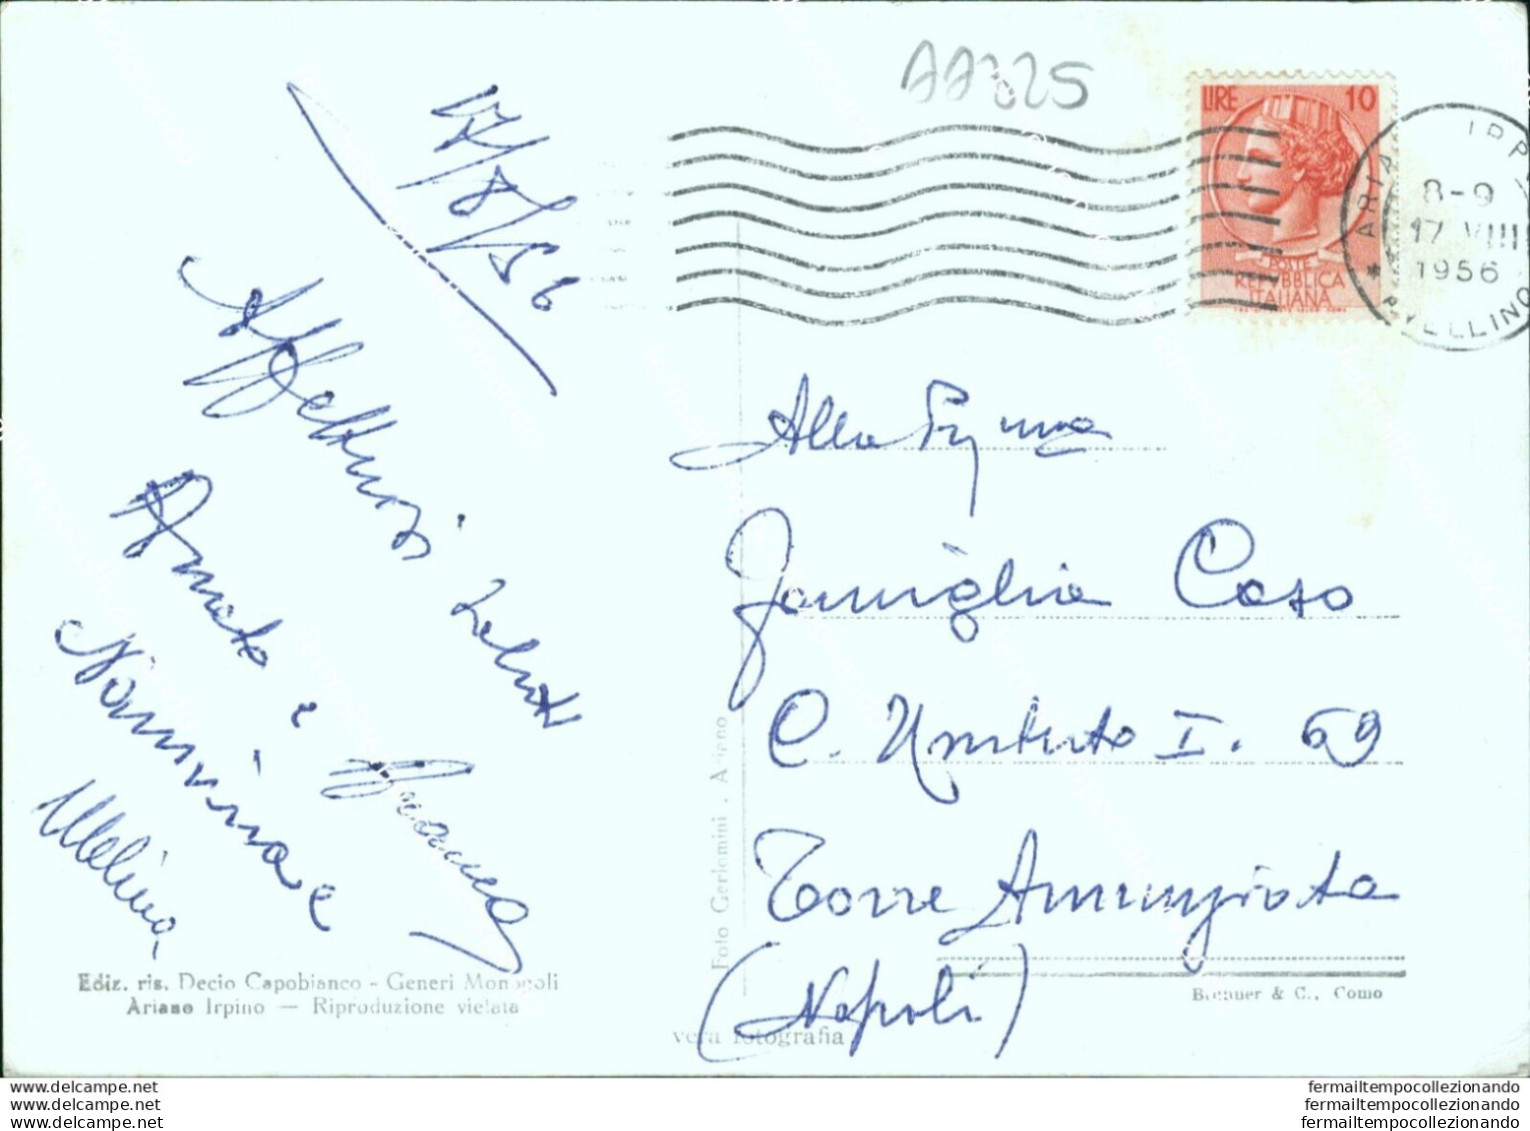 AA325
LIRE 10
POSTE
REPUBBLICA
ITALIANA
IRP
ARIA
8-9
17 VIII
1956
AVELLINO
17/8/56
Affettuosi saluti
Amato e
Nannina e
Melina
Alla
Famiglia Caso
C. Umberto I. 69
Torre Annunziata
(Napoli)
Foto Gerlomini . Ariano
Ediz. ris. Decio Capobianco - Generi Monopoli
Ariano Irpino — Riproduzione vietata
vera fotografia
& C., Como
www.delcampe.net
www.delcampe.net
www.delcampe.net
fermailtempocollezionando
fermailtempocollezionando
fermailtempocollezionando